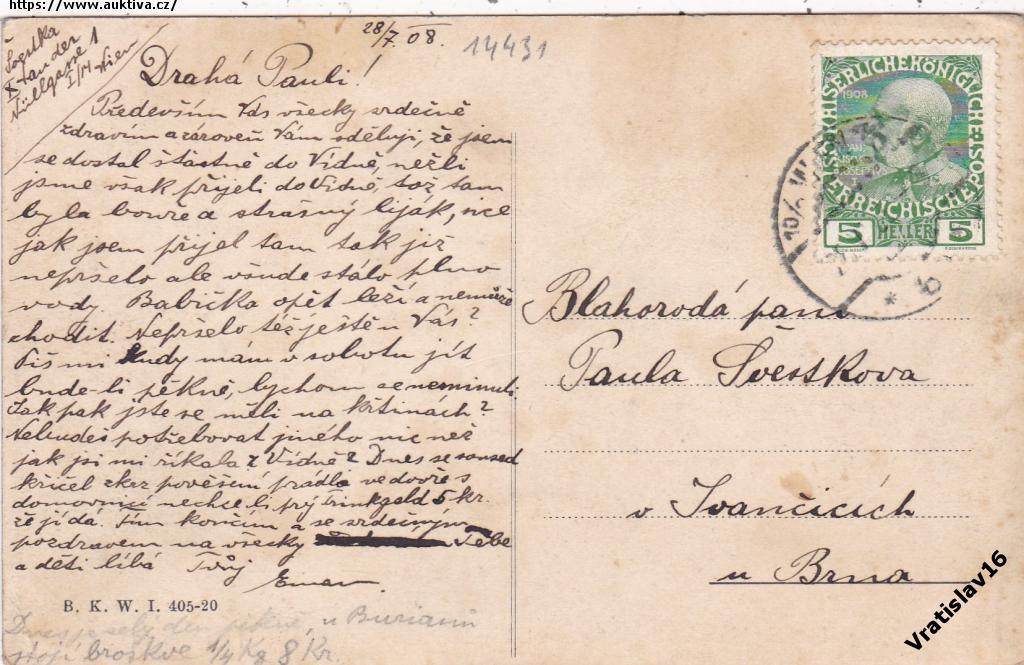 https://www.auktiva.cz/
28/7 08.
14431
Švestka
Nüllgasse 1
Drahá Pauli!
Především Vás všecky srdečně
zdravím a zároveň Vám sděluji, že jsem
se dostal šťastně do Vídně, nežli
jsme však přijeli do Vídně, tož tam
byla bouře a strašný liják, sice
jak jsem přijel tam tak již
nepršelo ale všude stálo plno
vody. Babička opět leží a nemůže
chodit. Nepršelo též ještě u Vás?
Piš mi kudy mám v sobotu jít
bude-li pěkně, bychom se neminuli.
Jak pak jste se měli na křtinách?
Nebudeš potřebovat jiného nic než
jak jsi mi říkala z Vídně? Dnes se soused
křičel skrz pověšení prádla ve dvoře s
domovnicí nechce-li prý Trinkgeld 5 kr.
že jí dá. Jím končím a se srdečným
pozdravem na všecky Tebe
a děti líbá Tvůj
Eman
B. K. W. I. 405-20
Dnes je celý den pěkně, u Burianů
stojí broskve 1/4 Kg 8 Kr.
KAISERLICHEKÖNIGLICHE
1908
ÖSTERREICHISCHE POST
5 HELLER 5
10/1 WIEN
* 6
Blahorodá paní
Paula Švestkova
v Ivančicích
u Brna
Vratislav16